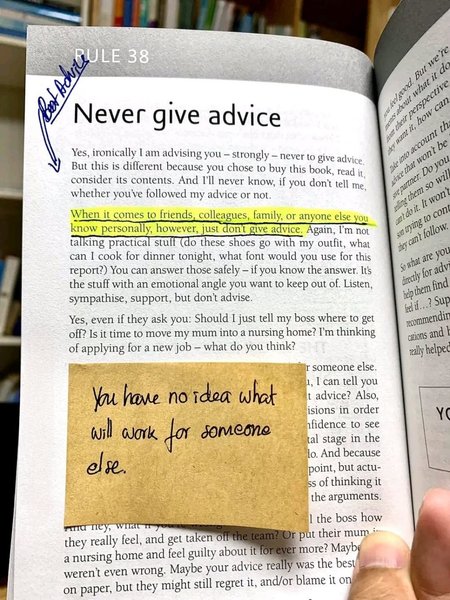 RULE 38
Best Advice
Never give advice
Yes, ironically I am advising you – strongly – never to give advice.
But this is different because you chose to buy this book, read it,
consider its contents. And I'll never know, if you don't tell me,
whether you've followed my advice or not.
When it comes to friends, colleagues, family, or anyone else you
know personally, however, just don't give advice. Again, I'm not
talking practical stuff (do these shoes go with my outfit, what
can I cook for dinner tonight, what font would you use for this
report?) You can answer those safely – if you know the answer. It's
the stuff with an emotional angle you want to keep out of. Listen,
sympathise, support, but don't advise.
Yes, even if they ask you: Should I just tell my boss where to get
off? Is it time to move my mum into a nursing home? I'm thinking
of applying for a new job – what do you think?
someone else.
I can tell you
advice? Also,
in order
to see
stage in the
And because
point, but
of thinking it
the arguments.
You have no idea what
will work for someone
else.
And hey, what
the boss how
they really feel, and get taken off the team? Or put their mum
a nursing home and feel guilty about it for ever more? Maybe
weren't even wrong. Maybe your advice really was the best
on paper, but they might still regret it, and/or blame it on